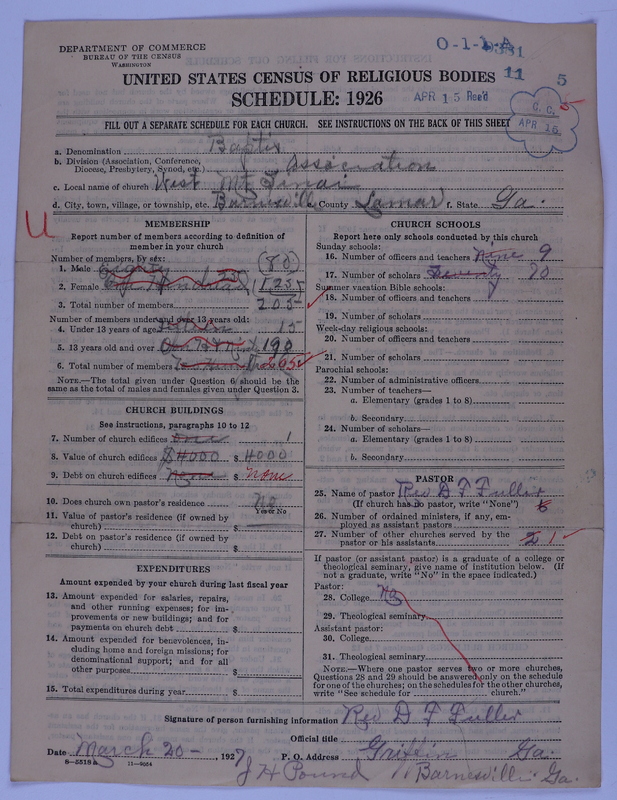 DEPARTMENT OF COMMERCE
BUREAU OF THE CENSUS
WASHINGTON
O-1-1-A
11 5
UNITED STATES CENSUS OF RELIGIOUS BODIES
SCHEDULE: 1926
APR 15 Rec'd
C. C.
APR 15
FILL OUT A SEPARATE SCHEDULE FOR EACH CHURCH. SEE INSTRUCTIONS ON THE BACK OF THIS SHEET
a. Denomination Baptis
b. Division (Association, Conference, Diocese, Presbytery, Synod, etc.) Association
c. Local name of church West Mt Sinai
d. City, town, village, or township, etc. Barnesville e. County Lamar f. State Ga.
U
MEMBERSHIP
Report number of members according to definition of
member in your church
Number of members, by sex:
1. Male eighty (80)
2. Female 125
3. Total number of members 205
Number of members under and over 13 years old:
4. Under 13 years of age 15
5. 13 years old and over 190
6. Total number of members 205
NOTE.—The total given under Question 6 should be
same as the total of males and females given under Question 3.
CHURCH BUILDINGS
See instructions, paragraphs 10 to 12
7. Number of church edifices one 1
8. Value of church edifices $4000 $ 4000
9. Debt on church edifices None $ none
10. Does church own pastor's residence No
Yes or No
11. Value of pastor's residence (if owned by
church) $
12. Debt on pastor's residence (if owned by
church) $
EXPENDITURES
Amount expended by your church during last fiscal year
13. Amount expended for salaries, repairs,
and other running expenses; for im-
provements or new buildings; and for
payments on church debt $
14. Amount expended for benevolences, in-
cluding home and foreign missions; for
denominational support; and for all
other purposes $
15. Total expenditures during year $
CHURCH SCHOOLS
Report here only schools conducted by this church
Sunday schools:
16. Number of officers and teachers Nine 9
17. Number of scholars Seventy 70
Summer vacation Bible schools:
18. Number of officers and teachers
19. Number of scholars
Week-day religious schools:
20. Number of officers and teachers
21. Number of scholars
Parochial schools:
22. Number of administrative officers
23. Number of teachers—
a. Elementary (grades 1 to 8)
b. Secondary
24. Number of scholars—
a. Elementary (grades 1 to 8)
b. Secondary
PASTOR
25. Name of pastor Rev D F Fuller
(If church has no pastor, write "None")
26. Number of ordained ministers, if any, em-
ployed as assistant pastors
27. Number of other churches served by the
pastor or his assistants 1
If pastor (or assistant pastor) is a graduate of a college or
theological seminary, give name of institution below. (If
not a graduate, write "No" in the space indicated.)
Pastor:
28. College No
29. Theological seminary
Assistant pastor:
30. College
31. Theological seminary
NOTE.—Where one pastor serves two or more churches,
Questions 28 and 29 should be answered only on the schedule
for one of the churches; on the schedules for the other churches,
write "See schedule for church."
Signature of person furnishing information Rev D F Fuller
Official title
Date March 20 - 1927 P. O. Address Griffin Ga.
8-5518a 11-9054 J H Pound Barnesville Ga.